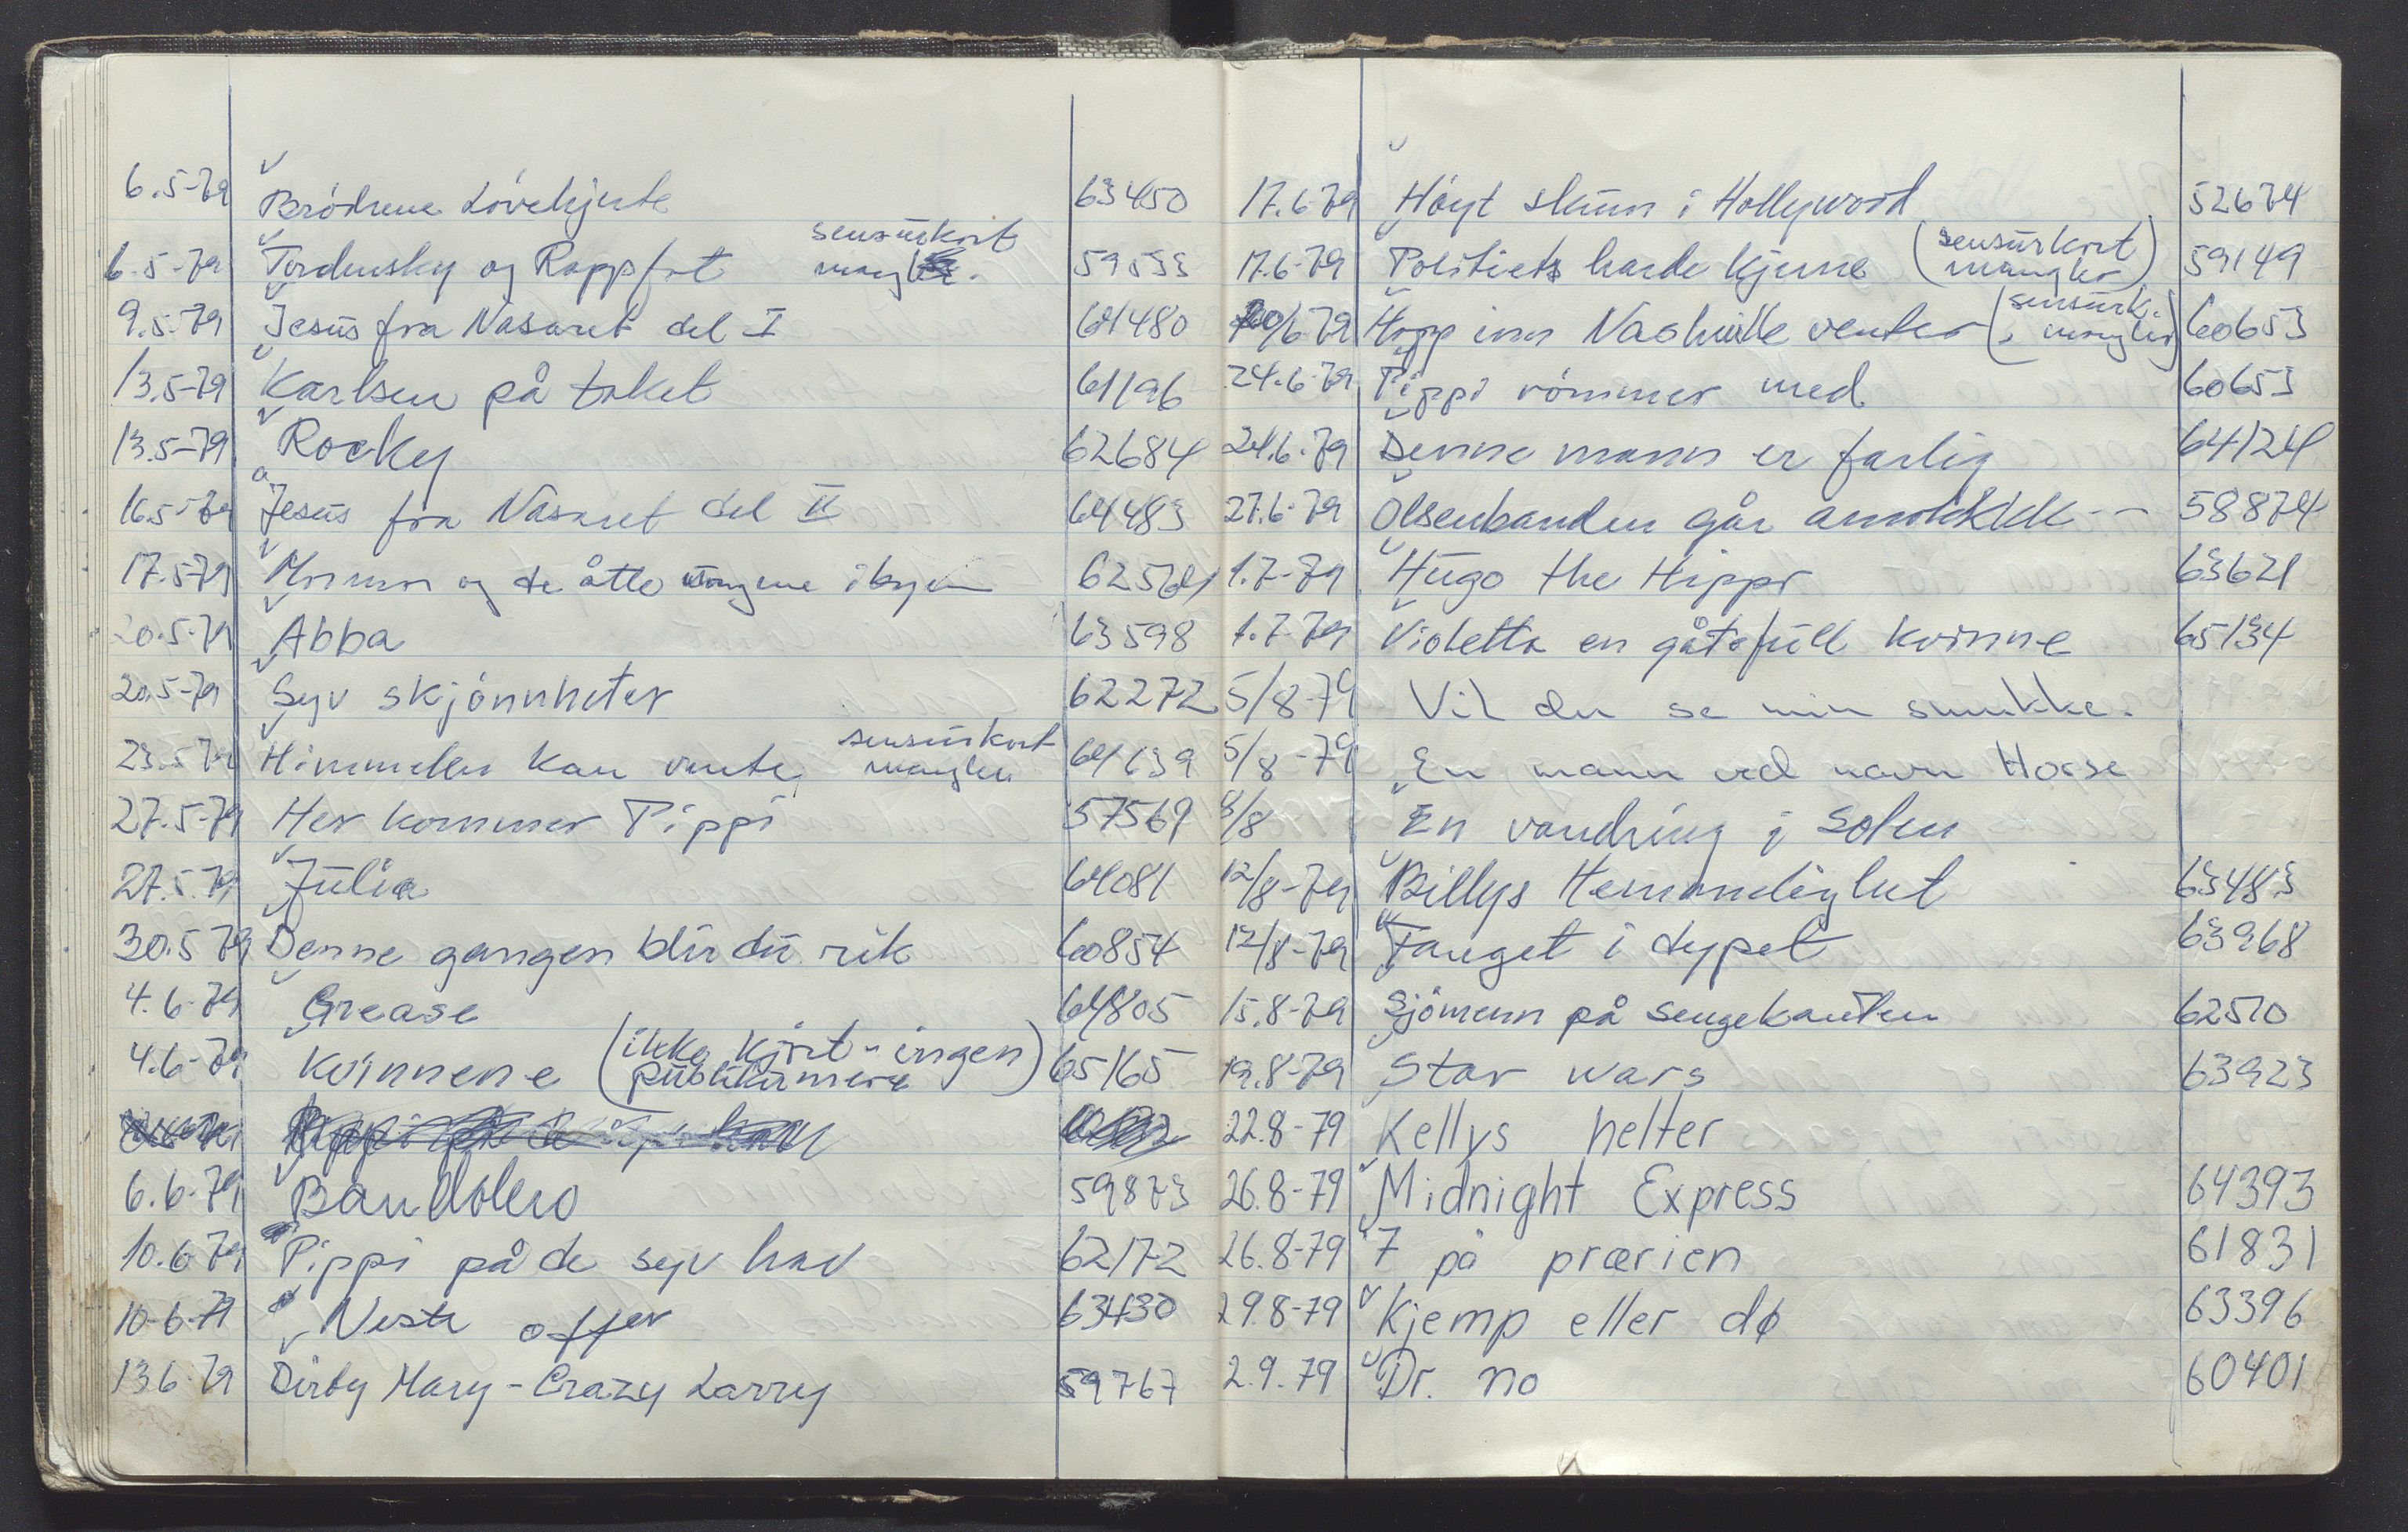 6.5-79 Brödrene Lövehjerte 63450
6.5-79 Tordensky og Rappfot sensurkort mangler. 59553
9.5.79 Jesus fra Nasaret del I 64480
13.5-79 Karlsen på taket 61196
13.5-79 Rocky 62684
16.5-79 Jesus fra Nasaret del II 64483
17.5-79 Mormor og de åtte ungene i byen
20.5-79 Abba 63598
20.5-79 Syv skjönnheter 62272
23.5-79 Himmelen kan vente, sensurkort mangler 64639
27.5-79 Her kommer Pippi 57569
27.5.79 Julia 64081
30.5 79 Denne gangen blir du rik 60854
4.6-79 Grease 64805
4.6-79 Kvinnene (ikke kjört - ingen publikummere) 65165
6.6-79 Bandolero 59873
10.6 79 Pippi på de syv hav 62172
10-6-79 Neste offer 63430
13.6-79 Dirty Mary - Crazy Larry 59767
17.6-79 Höyt skum i Hollywood 52674
17.6-79 Politiets harde kjerne (sensurkort mangler) 59149
20/6 79 Hopp inn Nashville venter (sensurk. mangler) 60653
24.6-79 Pippi römmer med 60653
24.6-79 Denne mann er farlig 64124
27.6-79 Olsenbanden går amokkkk -- 58874
1.7-79 Hugo the Hippo 63621
1.7-79 Violetta en gåtefull kvinne 65134
5/8-79 Vil du se min smukke.
5/8-79 En mann ved navn Horse
8/8 En vandring i Solen
12/8-79 Billys Hemmelighet 63483
12/8-79 Fanget i dypet 63968
15.8-79 Sjömenn på sengekanten 62510
19.8-79 Star wars 63923
22.8-79 Kellys helter
26.8-79 Midnight Express 64393
26.8-79 7 på prærien 61831
29.8-79 Kjemp eller dø 63396
2.9.79 Dr. no 60401